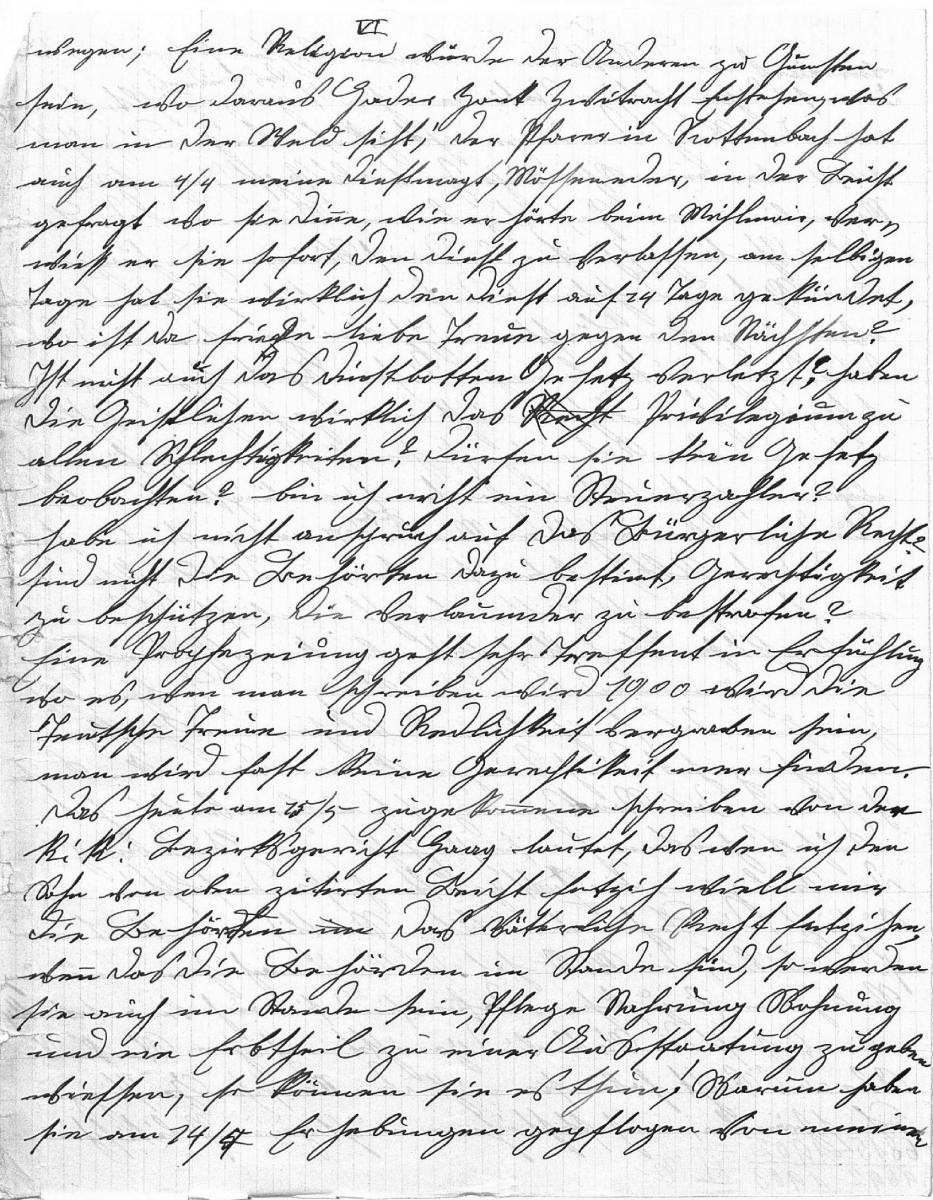 VI
wegen; Eine Religion würde der Anderen zu Gunsten
sein, wo daraus Hader Zank Zwitracht entstehen, was
man in der Weld siht! der Pfarer in Rottenbach hat
auch am 4/4 meine Dinstmagt, Mösseneder, in der Beicht
gefragt wo sie dine, wie er hörte beim Mihlmair, ver„
wieß er sie sofort, den Dinst zu verlassen, am selbigen
Tage hat sie wirklich den Dinst auf 14 Tage gekündet,
wo ist da Friede liebe Treue gegen den Nächsten?
Ist nicht auch das Dinstbotten Gesetz verletzt? haben
die Geistlichen wirklich das Recht Privilegium zu
allen Schlechtigkeiten? dürfen sie kein Gesetz
beobachten? bin ich nicht ein Steuerzahler?
habe ich nicht anspruch auf das Bürgerliche Recht?
sind nicht die Behörten dazu bestimt, Gerechtigkeit
zu beschützen, die Verlaumder zu bestrafen?
Eine Propfezeiung geht sehr Treffent in Erfühlung
wo es, wen man schreiben wird 1900 wird die
Teutsche Treue und Redlichkeit vergraben sein,
man wird fast keine Gerechtikeit mer finden.
Das heute am 15/5 zugekommene schreiben von der
k: k: Bezirksgericht Haag lautet, das wen ich den
Sohn von oben zitirten Beicht entzich wiell mir
die Behörden im das Väterliche Recht Entzihen,
wen das die Behörden im Stande sind, so werden
sie auch im Stande sein, Pflege Nahrung Wohnung
und ein Erbtheil zu einer Ausstaatung zu geben
wiessen, so können sie es thun! Warum haben
sie am 14/5 Erhebungen gepflogen von meinen